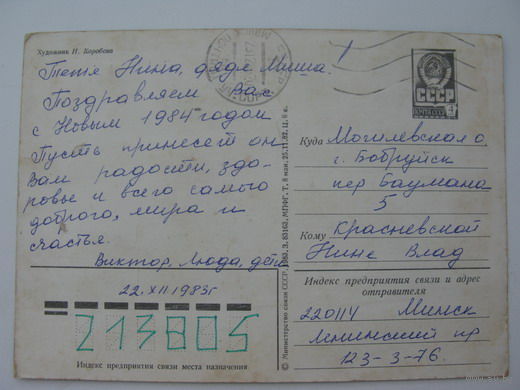 Художник Н. Коробова
Тетя Нина, дядя Миша!
Поздравляем Вас
с Новым 1984 годом
Пусть принесет он
Вам радости, здо-
ровье и всего самого
доброго, мира и
счастья.
Виктор, Люда, дети
22.XII 1983г
213805
Индекс предприятия связи места назначения
© Министерство связи СССР, 1983, З. 83162, МПФГ, Т. 8 млн, 25.11.82, Ц. 6 к.
СССР
4
Куда Могилевская о.
г. Бобруйск
пер Баумана
5
Кому Красневской
Нине Влад
Индекс предприятия связи и адрес
отправителя
220114 Минск
Ленинский пр
123-3-76.